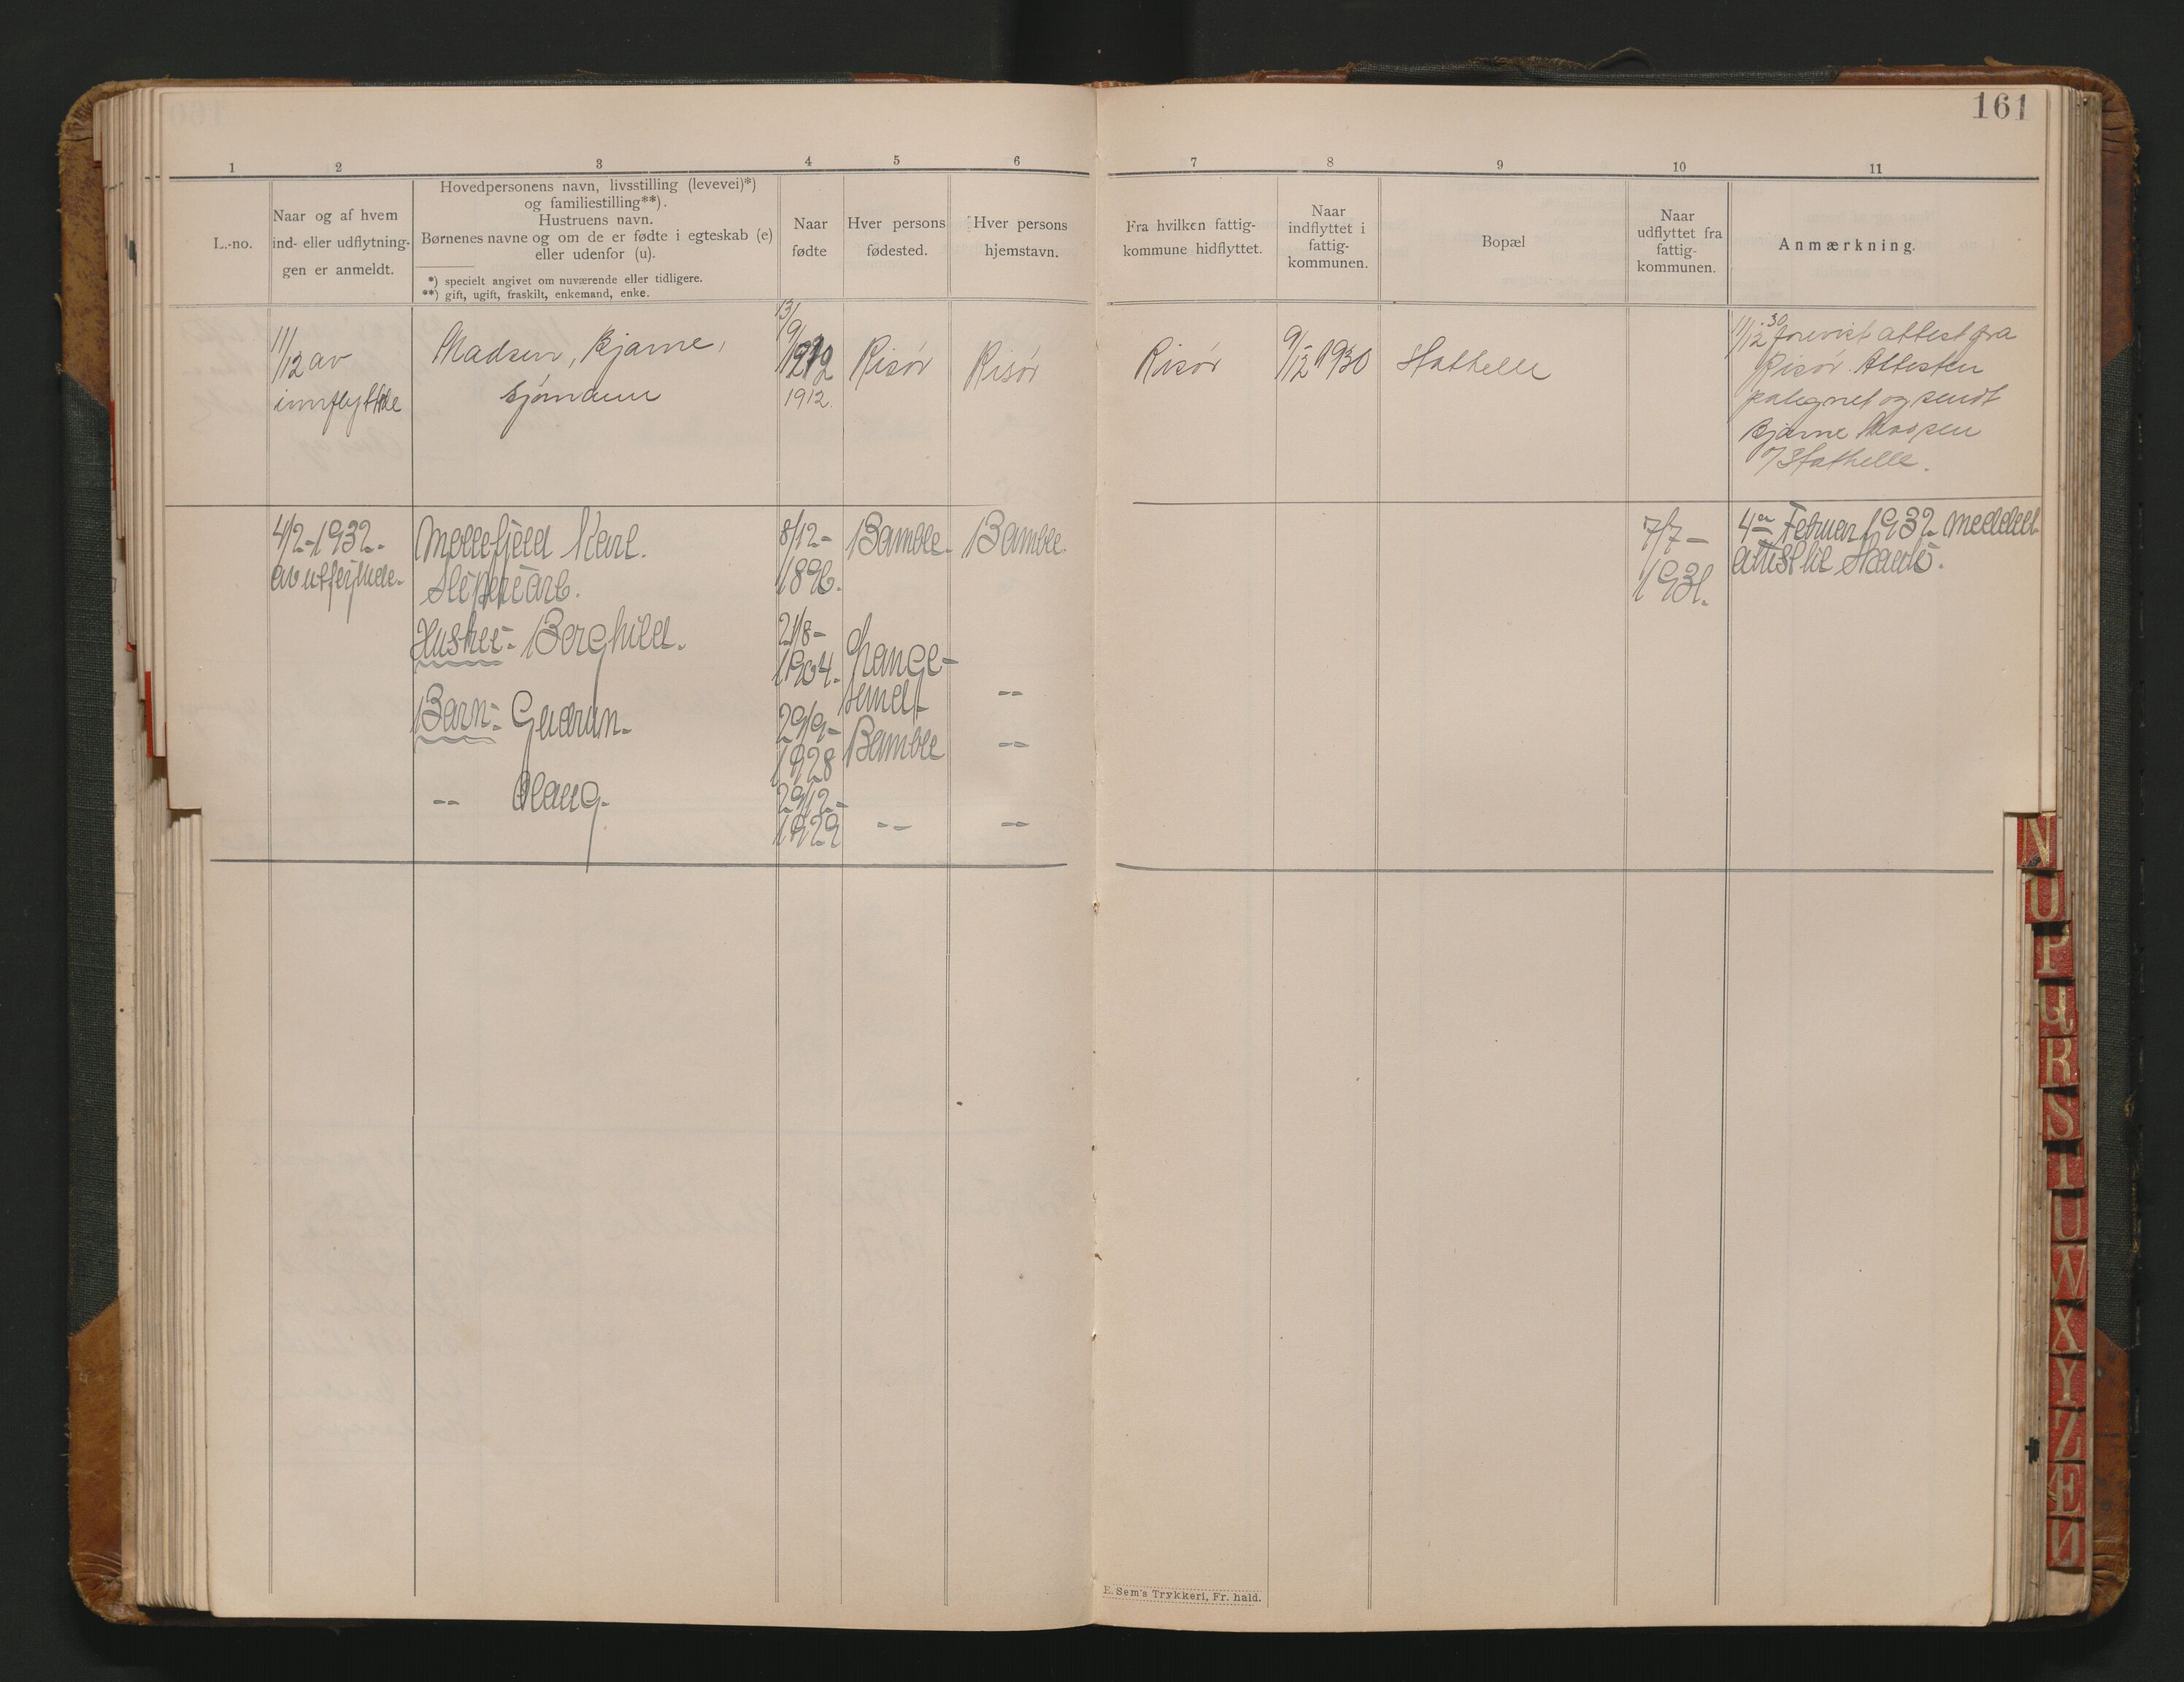 161
1 2 3 4 5 6 7 8 9 10 11
L.-no.
Naar og af hvem
ind- eller udflytnin-
gen er anmeldt.
Hovedpersonens navn, livsstilling (levevei)*)
og familiestilling**).
Hustruens navn.
Børnenes navne og om de er fødte i egteskab (e)
eller udenfor (u).
*) specielt angivet om nuværende eller tidligere.
**) gift, ugift, fraskilt, enkemand, enke.
Naar
fødte
Hver persons
fødested.
Hver persons
hjemstavn.
Fra hvilken fattig-
kommune hidflyttet.
Naar
indflyttet i
fattig-
kommunen.
Bopæl
Naar
udflyttet fra
fattig-
kommunen.
Anmærkning.
11/12 av
innflyttede
Madsen, Bjarne,
sjømann
13/9
1912
1912.
Risør
Risør
Risør
9/12 1930
Stathelle
11/12 30 forevist attest fra
Risør. Attesten
påtegnet og sendt
Bjarne
Stathelle.
4/2-1932.
Møllefjeld Karl.
8/12-
1896.
Bamble.
Bamble.
7/7-
1931.
4de Februar 1932 meddelt
Hustru:- Borghild.
21/8-
1904.
Barn:- Gudrun.
29/9-
1928
Bamble
--
--
-- Olaug.
29/12-
1929
--
--
N
O
P
Q
R
S
T
U
W
X
Y
Z
Æ
Ø
E. Sem's Trykkeri, Fr. hald.